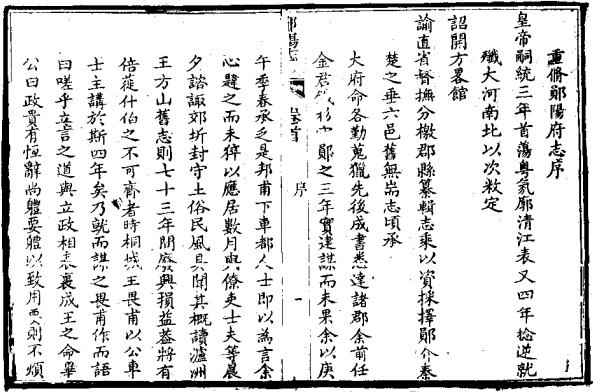 重脩鄖陽府志序
皇帝嗣統三年首蕩粵氛廓清江表又四年捻逆就
殲大河南北以次敉定
詔開方畧館
諭直省督撫分檄郡縣纂輯志乘以資採擇鄖介秦
楚之垂六邑舊無耑志頃承
大府命各勤蒐獵先後成書悉達諸郡余前任
金君 鄖之三年實建謀而未果余以庚
鄖陽志
卷首
序
一
午季春承乏是邦甫下車都人士即以為言余
心韙之而未猝以應居數月與僚吏士夫等晨
夕諮諏郊圻封守土俗民風具聞其概讀瀘州
王方山舊志則七十三年間廢興損益葢將有
倍蓰什伯之不可齊者時桐城王畏甫以公車
士主講於斯四年矣乃就而謀之畏甫作而語
曰嗟乎立言之道與立政相表裏成王之命畢
公曰政貴有恒辭尚體要體以致用要則不煩